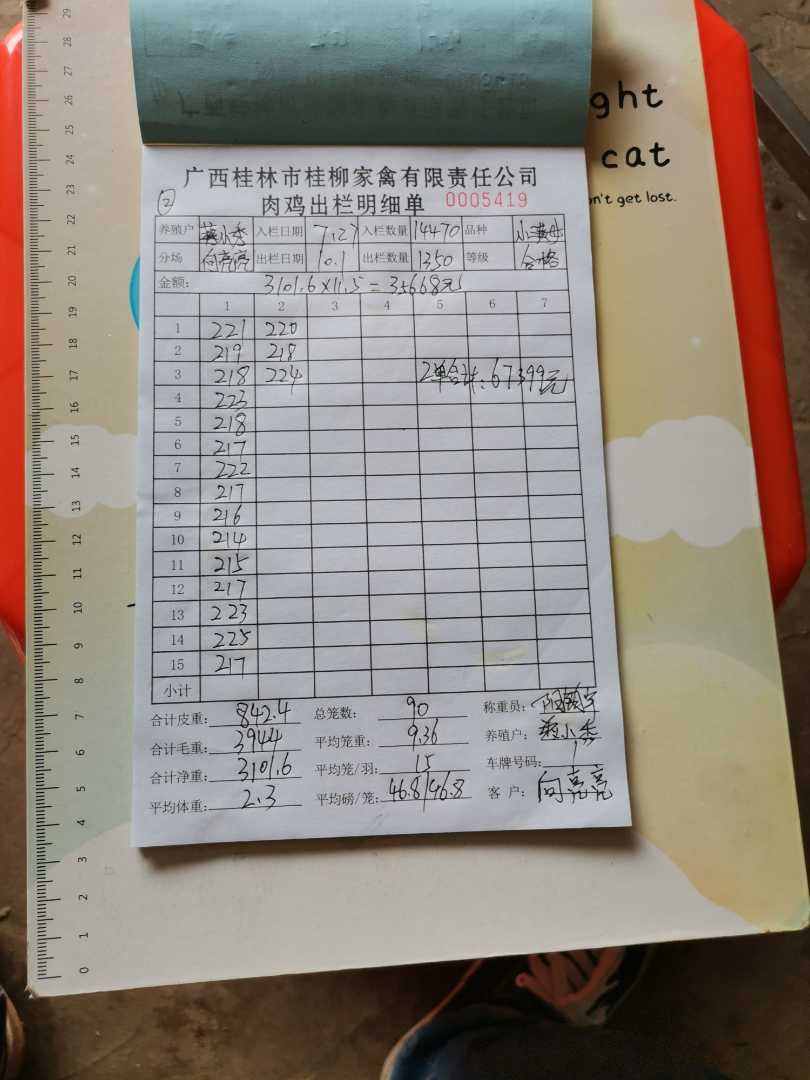 ght
cat
n't get lost.
广西桂林市桂柳家禽有限责任公司
② 肉鸡出栏明细单 0005419
养殖户 蒋小秀 入栏日期 7.27 入栏数量 14470 品种
分场 向亮亮 出栏日期 10.1 出栏数量 1350 等级 合格
金额: 3101.6×11.5=35668元
1 2 3 4 5 6 7
1 221 220
2 219 218
3 218 224 2单合计:67399元
4 223
5 218
6 217
7 222
8 217
9 216
10 214
11 215
12 217
13 223
14 225
15 217
小计
合计皮重: 842.4 总笼数: 90 称重员:
合计毛重: 3944 平均笼重: 9.36 养殖户: 蒋小秀
合计净重: 3101.6 平均笼/羽: 15 车牌号码:
平均体重: 2.3 平均磅/笼: 46.8/46.8 客户: 向亮亮
29
28
27
26
25
24
23
22
21
20
19
18
17
16
15
14
13
12
11
10
9
8
7
6
5
4
3
2
1
0